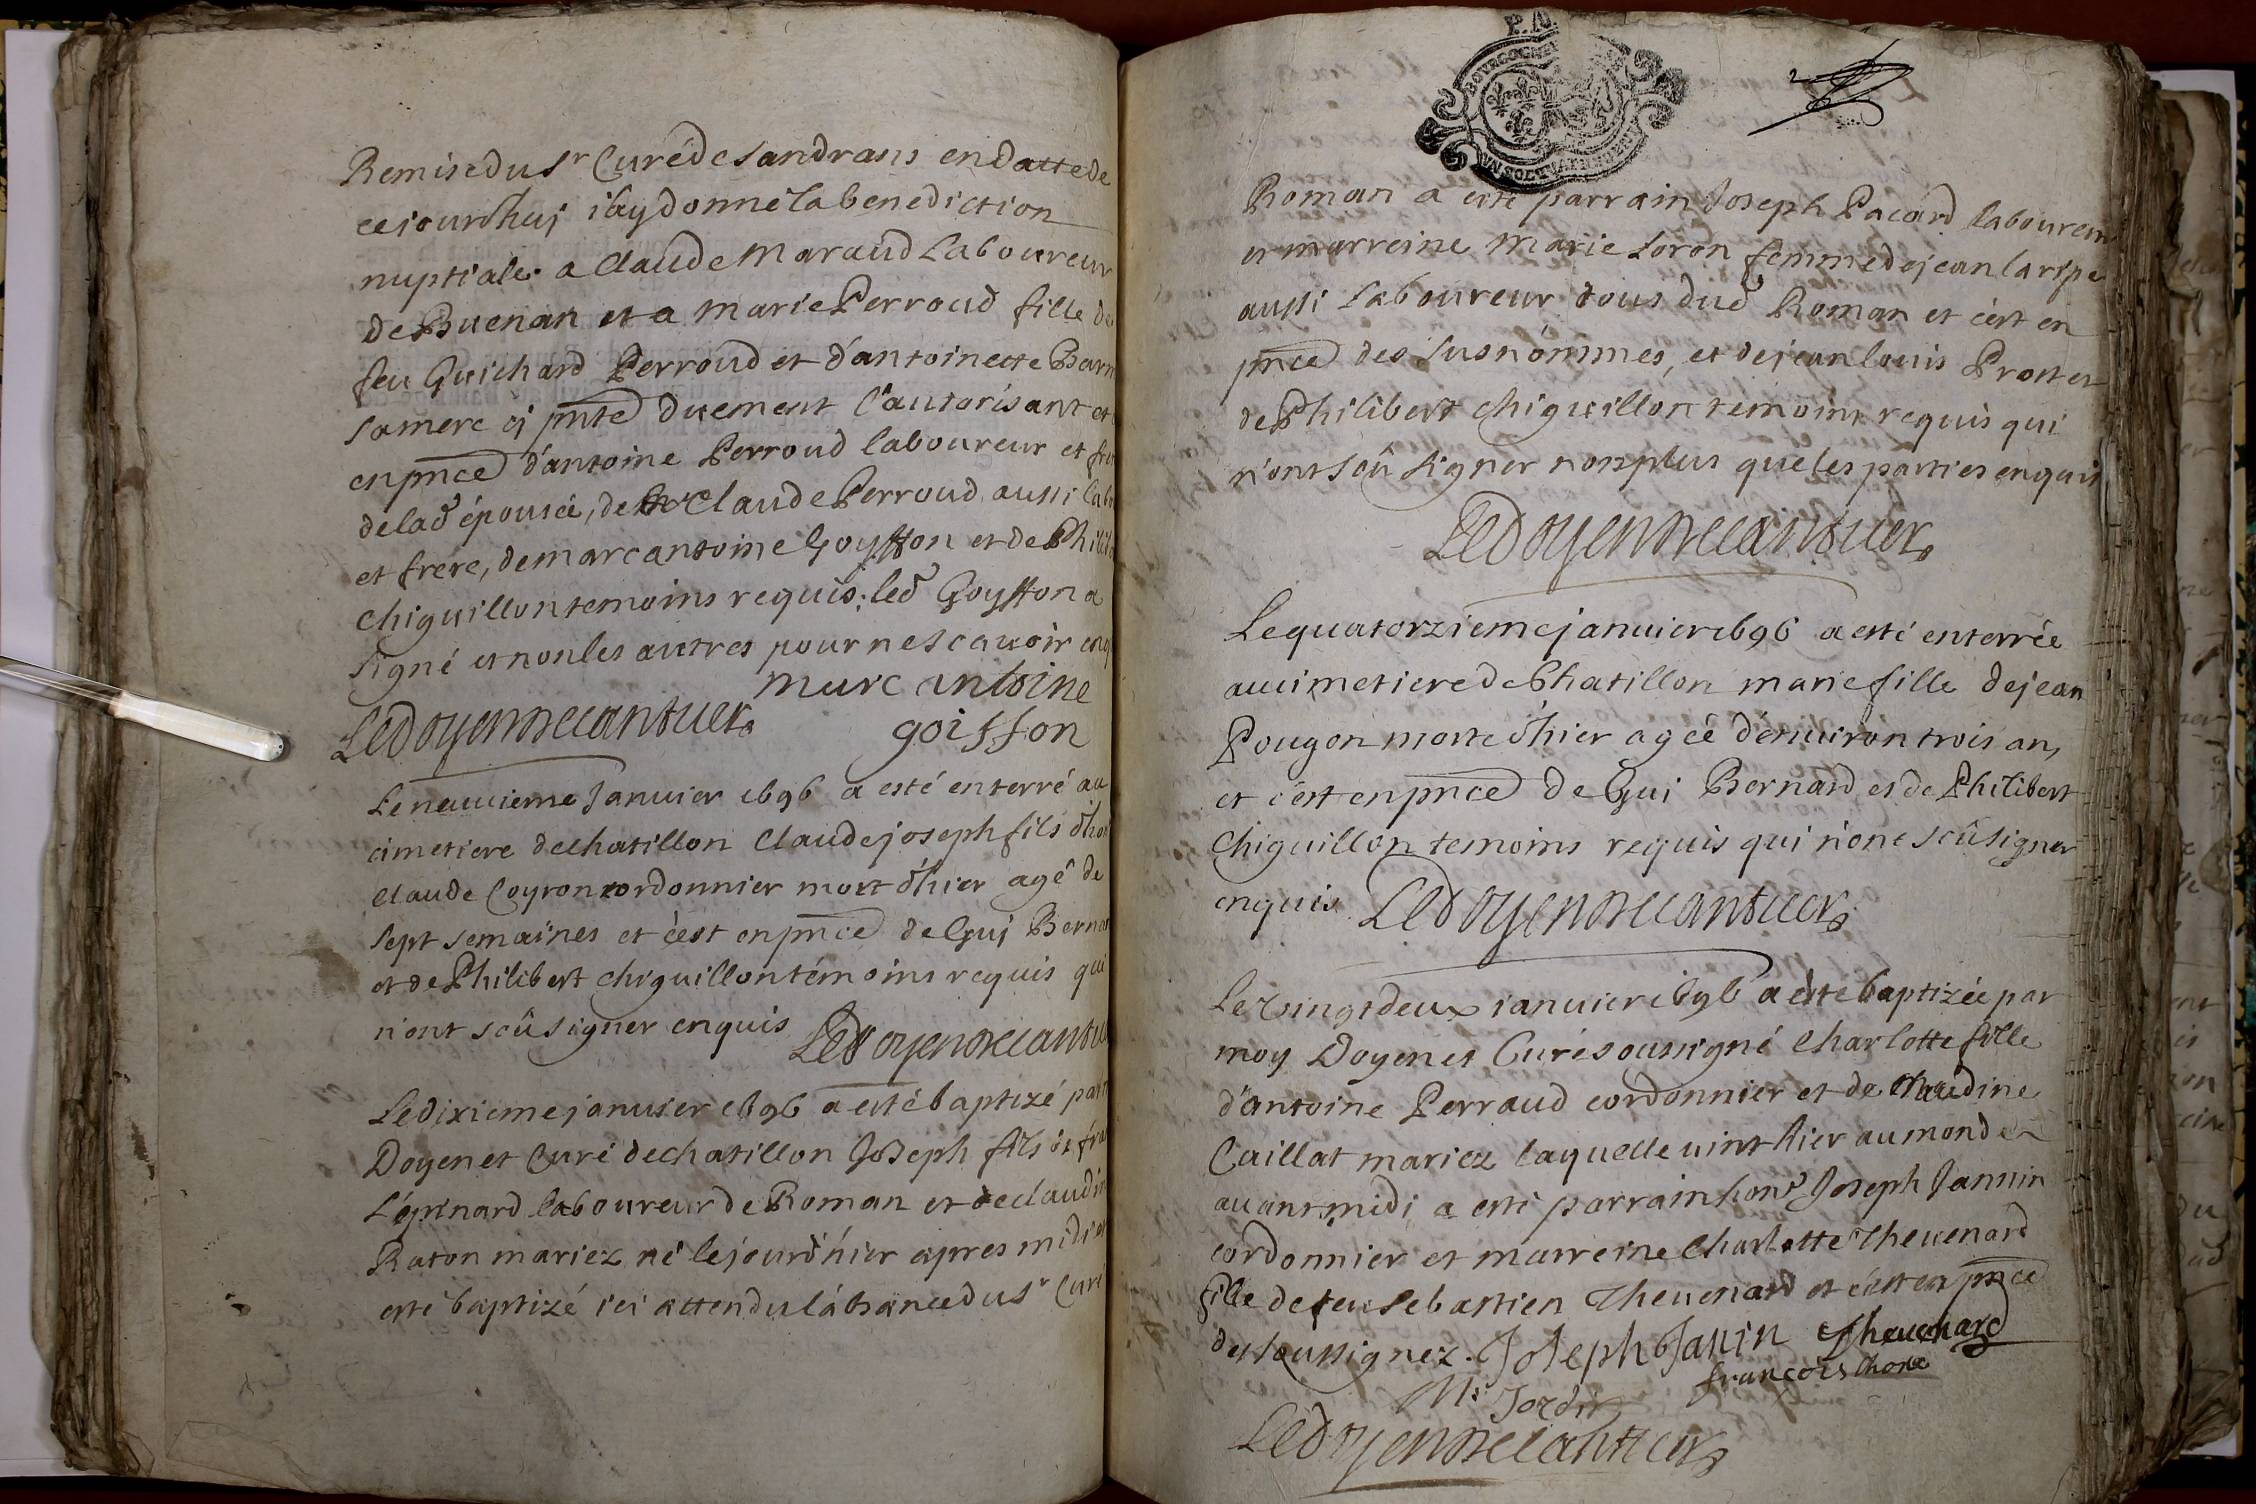 Remise du Sr Curé de Sandrans en datte de
ce jourdhuj i'ay donné la benediction
nuptiale a Claude Maraud Laboureur
de Buenan et a Marie Perroud fille de
feu Guichard Perroud et d'antoinette Barn
sa mere cj pnte duement l'autorisant et
en pnce d'antoine Perroud laboureur et fre
de lad épousée, de Claude Perroud aussi lab
et frere, de marc antoine Goyffon et de Philib
Chiguillon temoins requis; led Goyffon a
signé et non les autres pour ne scavoir enq
marc antoine
goiffon
Le doyen
Le neuvieme Januier 1696 a esté enterré au
cimetiere de chatillon Claude joseph fils d'hon
Claude Coyron cordonnier mort d'hier agé de
sept semaines et c'est en pnce de Guj Bernar
et de Philibert Chiguillon témoins requis qui
n'ont scû signer enquis
Le doyen
Le dixieme januier 1696 a esté baptizé par
Doyen et Curé de chatillon Joseph fils de fra
Lépinard laboureur de Roman et de claudin
Raton mariez né le jour d'hier apres midi et
esté baptizé ici attendu l'absance du Sr Curé
P.N.
2
Roman a esté parrain Joseph Pacard laboureur
et marreine Marie Loron femme de jean laripe
aussi Laboureur tous dud Roman et c'est en
pnce des susnommes, et de jean louis Prost et
de Philibert Chiguillon témoins requis qui
n'ont scû signer non plus que les parties enquis
Le doyen
Le quatorzieme januier 1696 a esté enterrée
au cimetiere de Chatillon marie fille de jean
Pougon morte d'hier agée d'enuiron trois ans
et c'est en pnce de Gui Bernard et de Philibert
Chiguillon temoins requis qui n'ont scû signer
enquis Le doyen
Le vingt deux ianuier 1696 a esté baptizée par
moy Doyen et Curé soussigné Charlotte fille
d'antoine Perraud cordonnier et de Claudine
Caillat mariez laquelle uint hier au monde
auant midi a esté parrain honr Joseph Jannin
cordonnier et marreine Charlotte Theuenard
fille de feu Sebastien Theuenard et c'est en pnce
des soussignez. Joseph Janin Theuenard
francois
Jordin
Le doyen